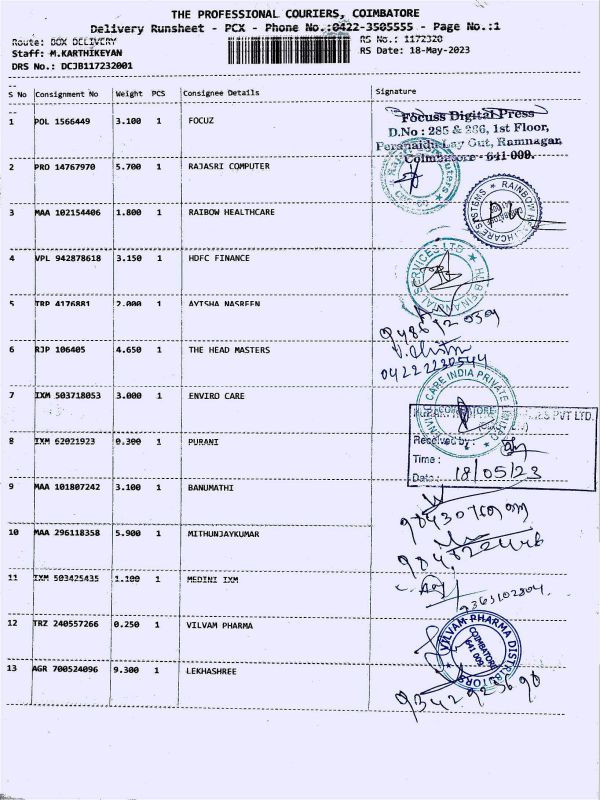 THE PROFESSIONAL COURIERS, COIMBATORE
Delivery Runsheet - PCX - Phone No.:0422-3505555 - Page No.:1
Route: BOX DELIVERY
RS No.: 1172320
Staff: M.KARTHIKEYAN
RS Date: 18-May-2023
DRS No.: DCJB117232001
S No Consignment No Weight PCS Consignee Details Signature
1 POL 1566449 3.100 1 FOCUZ
Focuss Digital Press
D.No : 285 & 286, 1st Floor,
Peranaidu Lay Out, Ramnagar,
Coimbatore - 641 009.
2 PRO 14767970 5.700 1 RAJASRI COMPUTER
3 MAA 102154406 1.800 1 RAIBOW HEALTHCARE
RAINBOW HEALTHCARE SYSTEMS
4 VPL 942878618 3.150 1 HDFC FINANCE
FINANCIAL SERVICES LTD
5 TRP 4176881 2.000 1 AYISHA NASREEN
6 RJP 106405 4.650 1 THE HEAD MASTERS
04222220544
7 IXM 503718053 3.000 1 ENVIRO CARE
ENVIRO CARE INDIA PRIVATE LIMITED
COIMBATORE
PVT LTD.
8 IXM 62021923 0.300 1 PURANI
Received by :
Time :
Date : 18/05/23
9 MAA 101807242 3.100 1 BANUMATHI
10 MAA 296118358 5.900 1 MITHUNJAYKUMAR
11 IXM 503425435 1.100 1 MEDINI IXM
9363102804
12 TRZ 240557266 0.250 1 VILVAM PHARMA
VILVAM PHARMA DISTRIBUTORS
COIMBATORE
641 009
13 AGR 700524096 9.300 1 LEKHASHREE